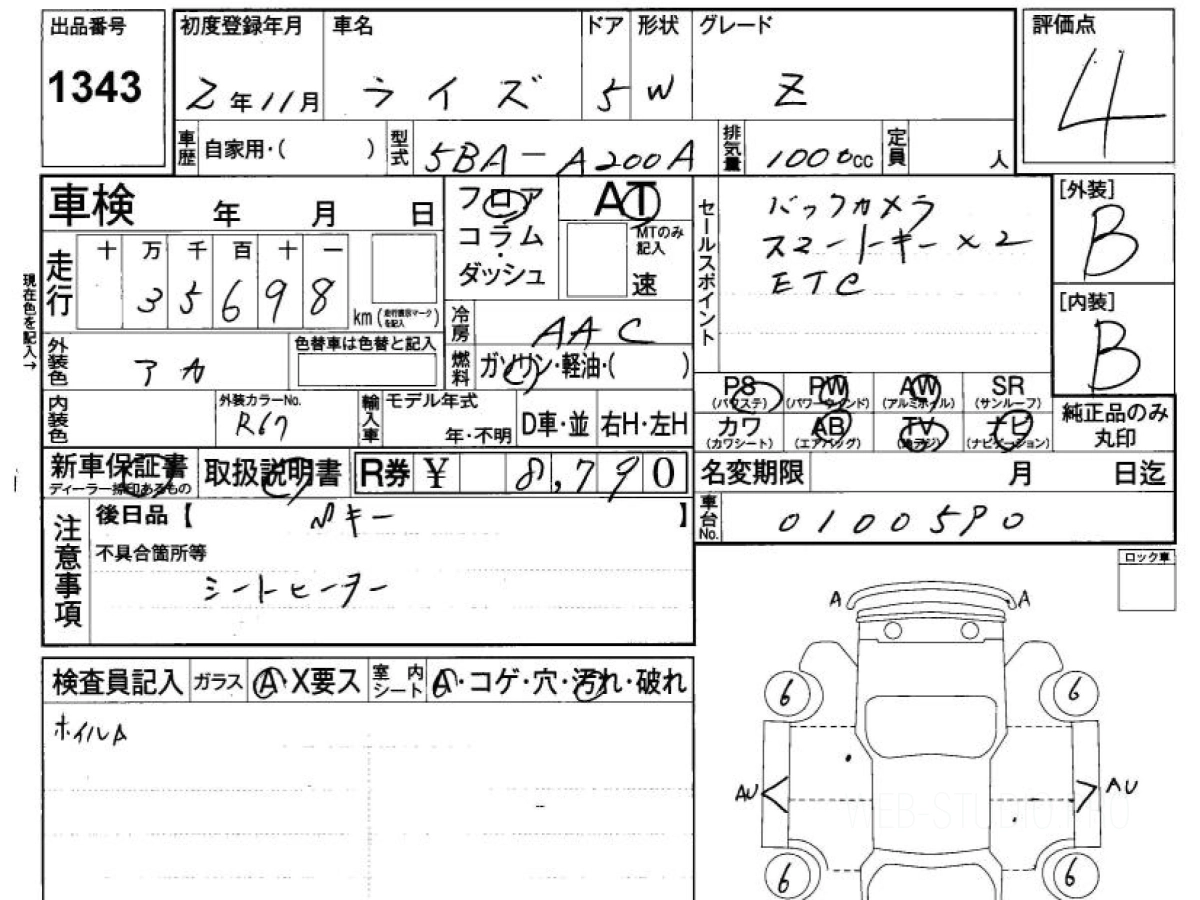 出品番号 初度登録年月 車名 ドア 形状 グレード 評価点
1343 2年11月 ライズ 5 W Z 4
車歴 自家用・( ) 型式 5BA-A200A 排気量 1000cc 定員 人
車検 年 月 日
フロア
コラム・
ダッシュ
AT
MTのみ
記入
速
セールスポイント
バックカメラ
スマートキー×2
ETC
[外装]
B
[内装]
B
現在色を記入→
走行 十 万 千 百 十 一
35698 km(走行表示マークを記入)
冷房 AAC
外装色 アカ 色替車は色替と記入
燃料 ガソリン・軽油・( )
PS (パワステ) PW (パワーウィンド) AW (アルミホイル) SR (サンルーフ)
カワ (カワシート) AB (エアバッグ) TV (地デジ) ナビ (ナビゲーション)
純正品のみ
丸印
内装色 外装カラーNo. R67 輸入車 モデル年式 年・不明 D車・並 右H・左H
新車保証書 ディーラー捺印あるもの 取扱説明書 R券 ¥ 8,790
名変期限 月 日迄
車台No. 0100590
注意事項
後日品【 キー 】
不具合箇所等
シートヒーター
ロック車
A A
検査員記入 ガラス A・X要ス 室内シート A・コゲ・穴・汚れ・破れ
ホイルA
6 6
AU AU
WEB-STUDIO.PRO
6 6